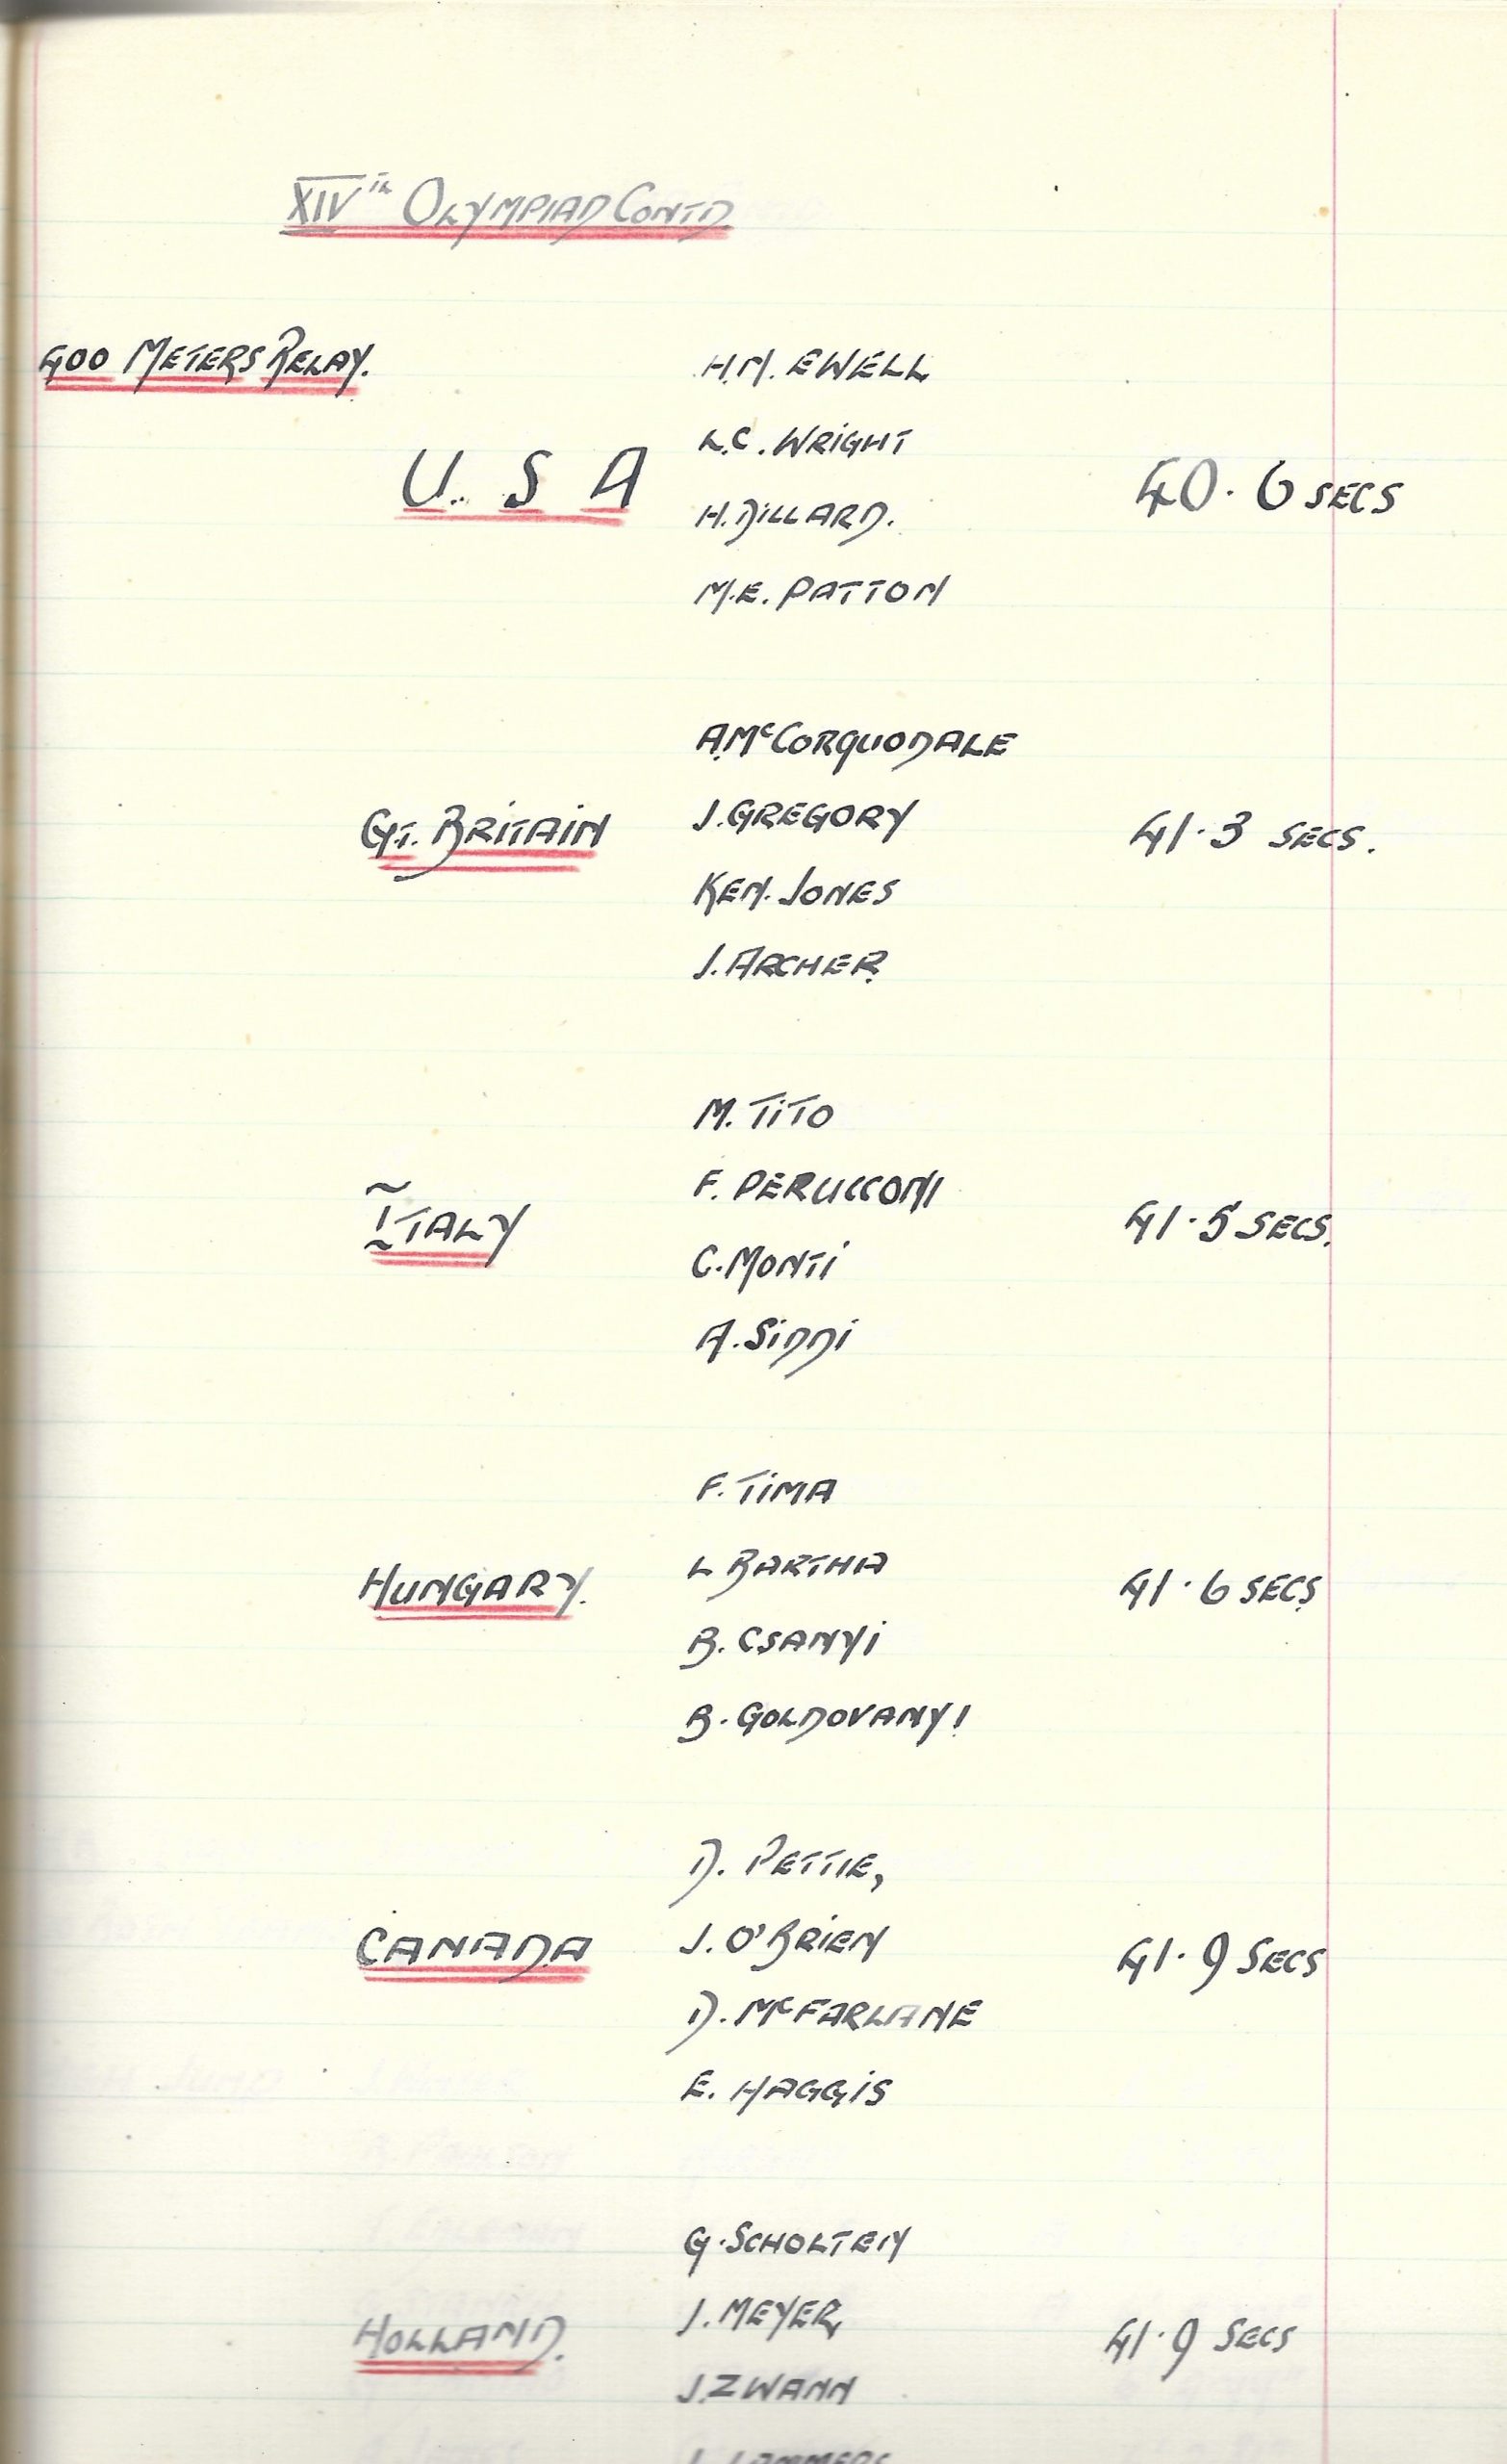 XIVth OLYMPIAD CONTD.
400 METERS RELAY.
H.N. EWELL
L.C. WRIGHT
U. S A
40.6 SECS
H. DILLARD.
M.E. PATTON
A. McCORQUODALE
J. GREGORY
GT. BRITAIN
41.3 SECS.
KEN. JONES
J. ARCHER
M. TITO
F. PERUCCONI
ITALY
41.5 SECS.
C. MONTI
A. SIDDI
F. TIMA
L BARTHA
HUNGARY.
41.6 SECS
B. CSANYI
B. GOLDOVANYI
D. PETTIE,
J. O'BRIEN
CANADA
41.9 SECS
D. McFARLANE
E. HAGGIS
G. SCHOLTEN
J. MEYER,
HOLLAND.
41.9 SECS
J. ZWANN
LAMMERS